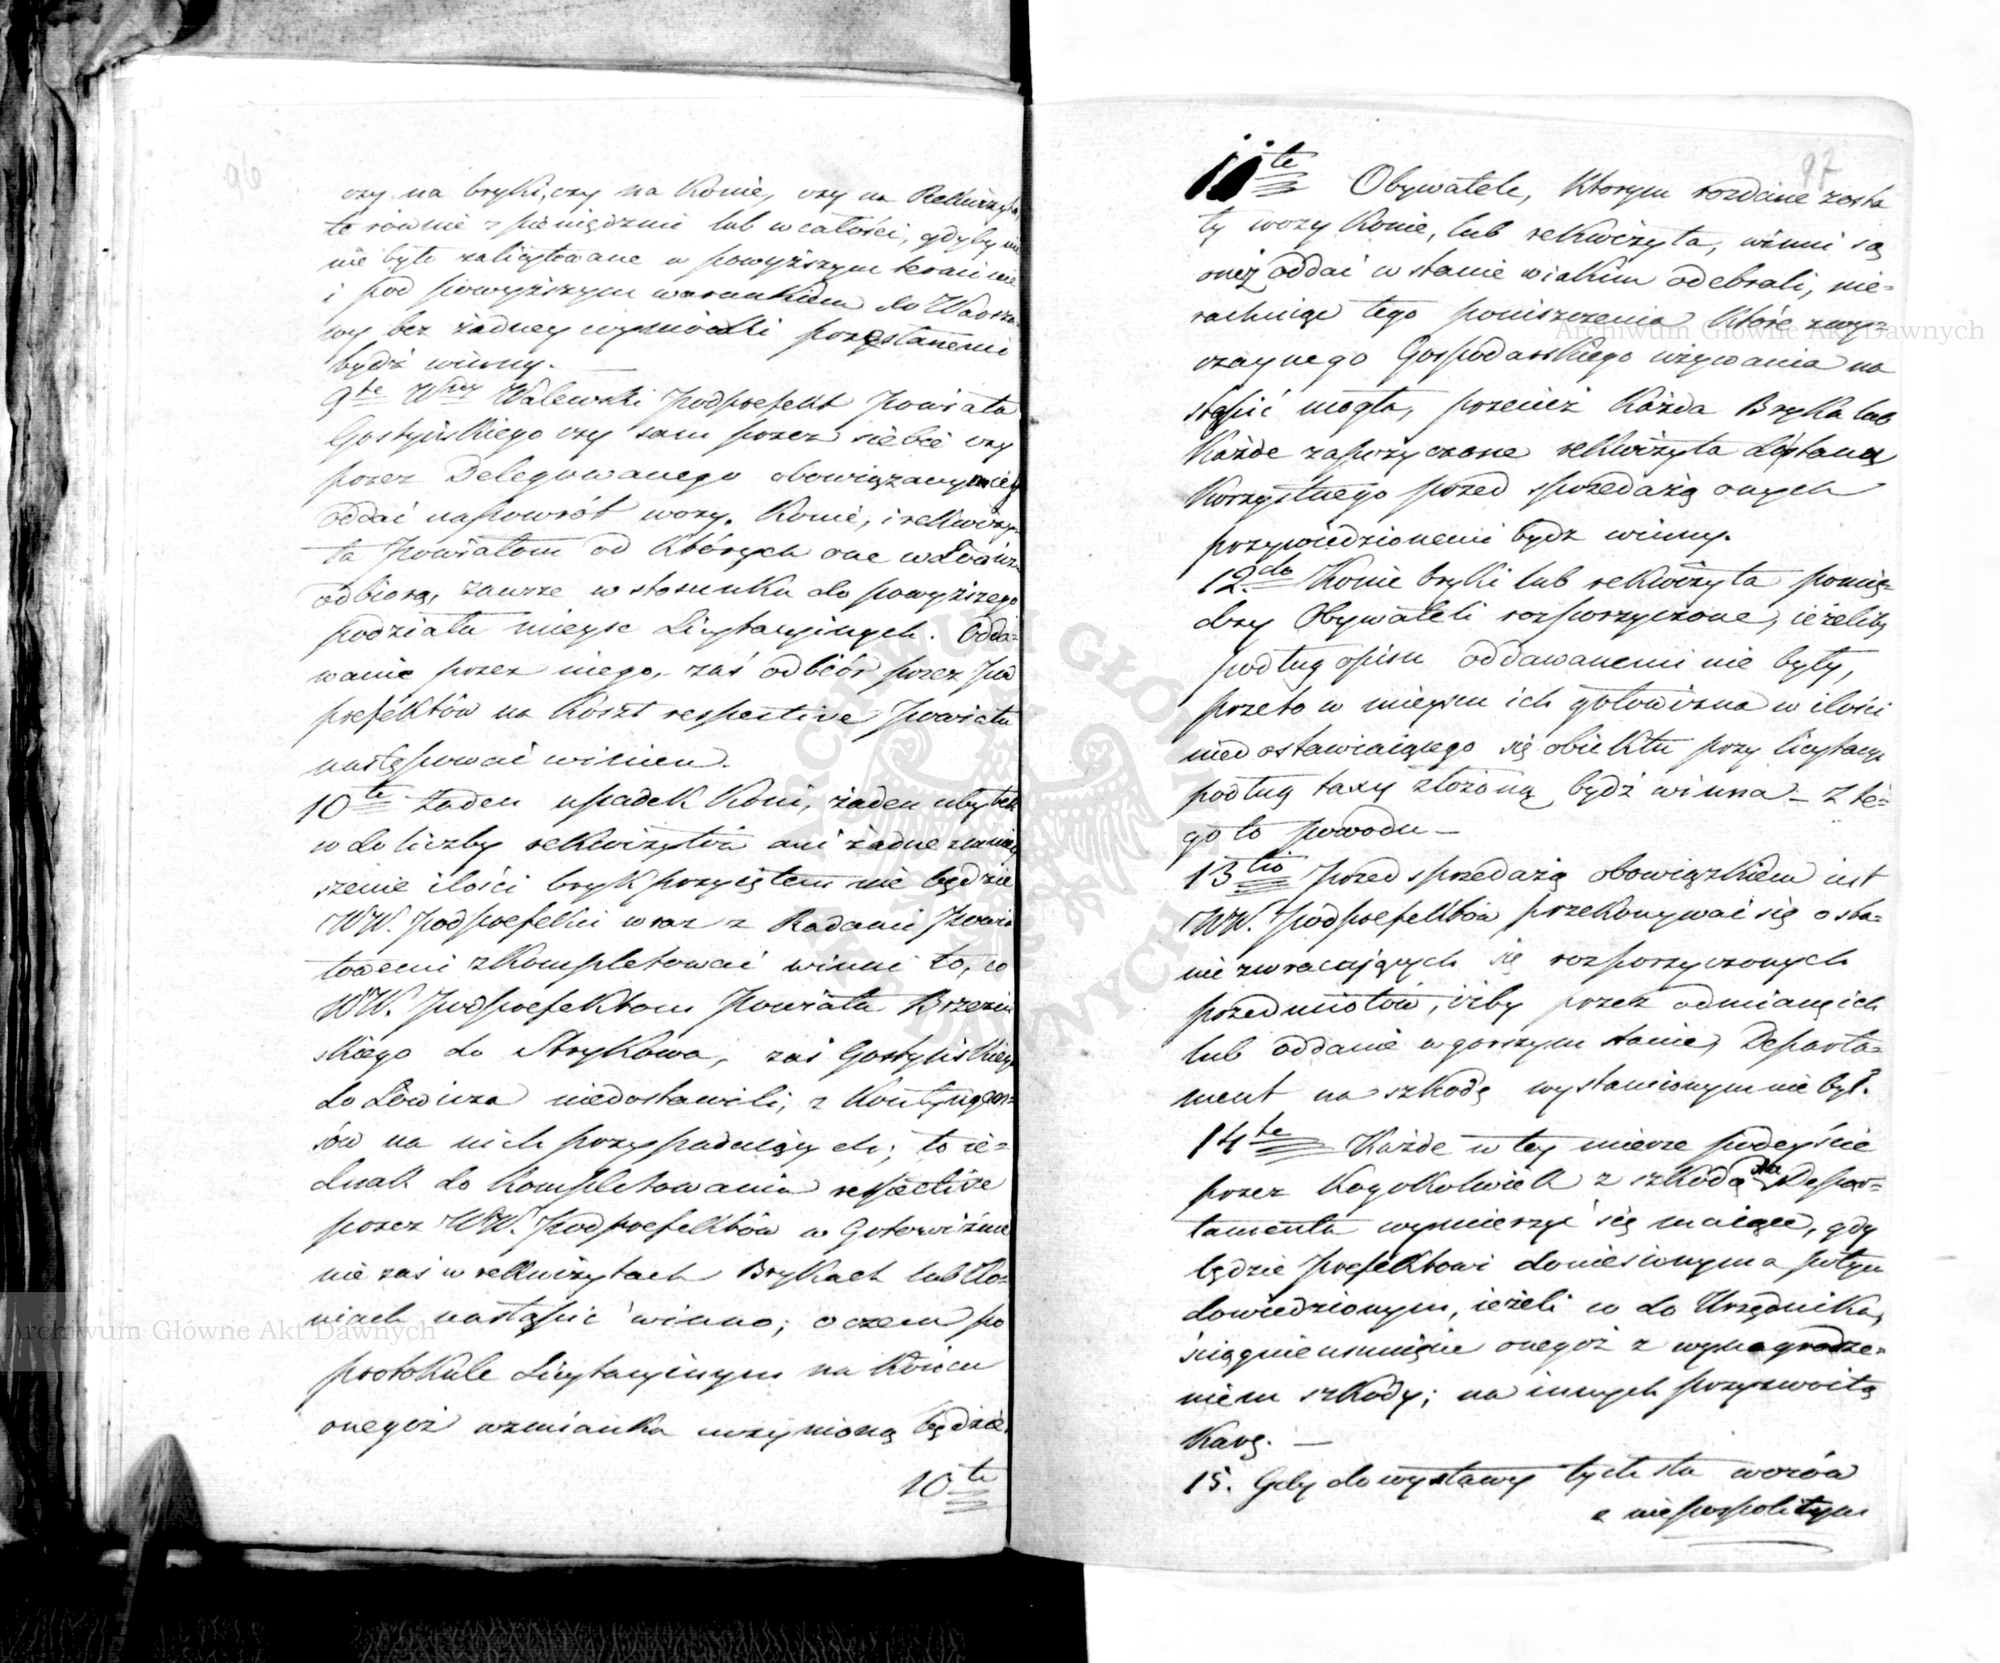 96
czy na bryki, czy na Konie, czy na Rekwizyta,
te równie z pieniędzmi lub w całości, gdyby nie
nie było zalicytowane w powyższym terminie
i pod powyższym warunkiem do Warsza-
wy bez żadney wymówki przestanemi
bydź winny.
9te Wny Walewski Podprefekt Powiatu
Gostyńskiego czy sam przez siebie czy
przez Delegowanego obowiązany
oddać napowrót wozy, Konie, i rekwizy-
ta Powiatom od których one w Łowiczu
odbiorą, zawsze w stosunku do powyższego
podziału mieysc Licytacyinych. Odda-
wanie przez niego, zaś odbiór przez Pod
prefektów na koszt respective Powiatu
następować winien.
10te Żaden upadek Koni, żaden ubytek
w do liczby rekwizytów ani żadne zmniey
szenie ilości bryk przyiętem nie będzie
WW. Podprefekci wraz z Radami Powia
towemi zkompletować winni to, co
WW. Podprefektom Powiatu Brzeziń
skiego do Strykowa, zaś Gostyńskiego
do Łowicza niedostawili, z Kontyngen-
sów na nich przypadaiących; to ie-
dnak do kompletowania respective
przez WW. Podprefektów w Gotowiźnie
nie zaś w rekwizytach Brykach lub Ko-
niach nastąpić winno; o czem po
protokule Licytacyinym na Końcu
onegoż wzmianka uczynioną będzie.
10te
97
11te Obywatele, Którym rozdane zosta
ły wozy Konie, lub rekwizyta, winni są
oneż oddać w stanie w iakim odebrali, nie-
rachuiąc tego poniszczenia Które zwy-
czaynego Gospodarskiego używania na
stąpić mogło, przecież Każda Bryka lub
Każde zapożyczone rekwizyta do stanu
Korzystnego przed sprzedażą onych
przywiedzionemi bydz winny.
12.do Konie bryki lub rekwizyta pomię-
dzy Obywateli rozporzyczone, ieżeliby
podług opisu oddawanemi nie były,
przeto w mieyscu ich gotowizna w ilości
niedostawiaiącego się obiektu przy licytacyi
podług taxy złożoną bydź winna – Z te-
go to powodu –
13tio Przed sprzedażą obowiązkiem iest
WW. Podprefektów przekonywać się o sta-
nie zwracaiących się rozporzyczonych
przedmiotów, iżby przez odmianę ich
lub oddanie w gorszym stanie, Departa-
ment na szkodę wystawionym nie był.
14te Każde w tey mierze podeyście
przez kogokolwiek z szkodą dla Depar-
tamentu wymierzyć się maiące, gdy
będzie Prefektowi doniesionym a potym
dowiedzionym, ieżeli co do Urzędnika,
ściągnie usunięcie onegoż z wynagrodze-
niem szkody; na innych przyzwoitą
Karę. —
15. Gdy do wystawy tych sta wozów
z niepospolitym
Archiwum Główne Akt Dawnych
Archiwum Główne Akt Dawnych
ARCHIWUM GŁÓWNE AKT DAWNYCH